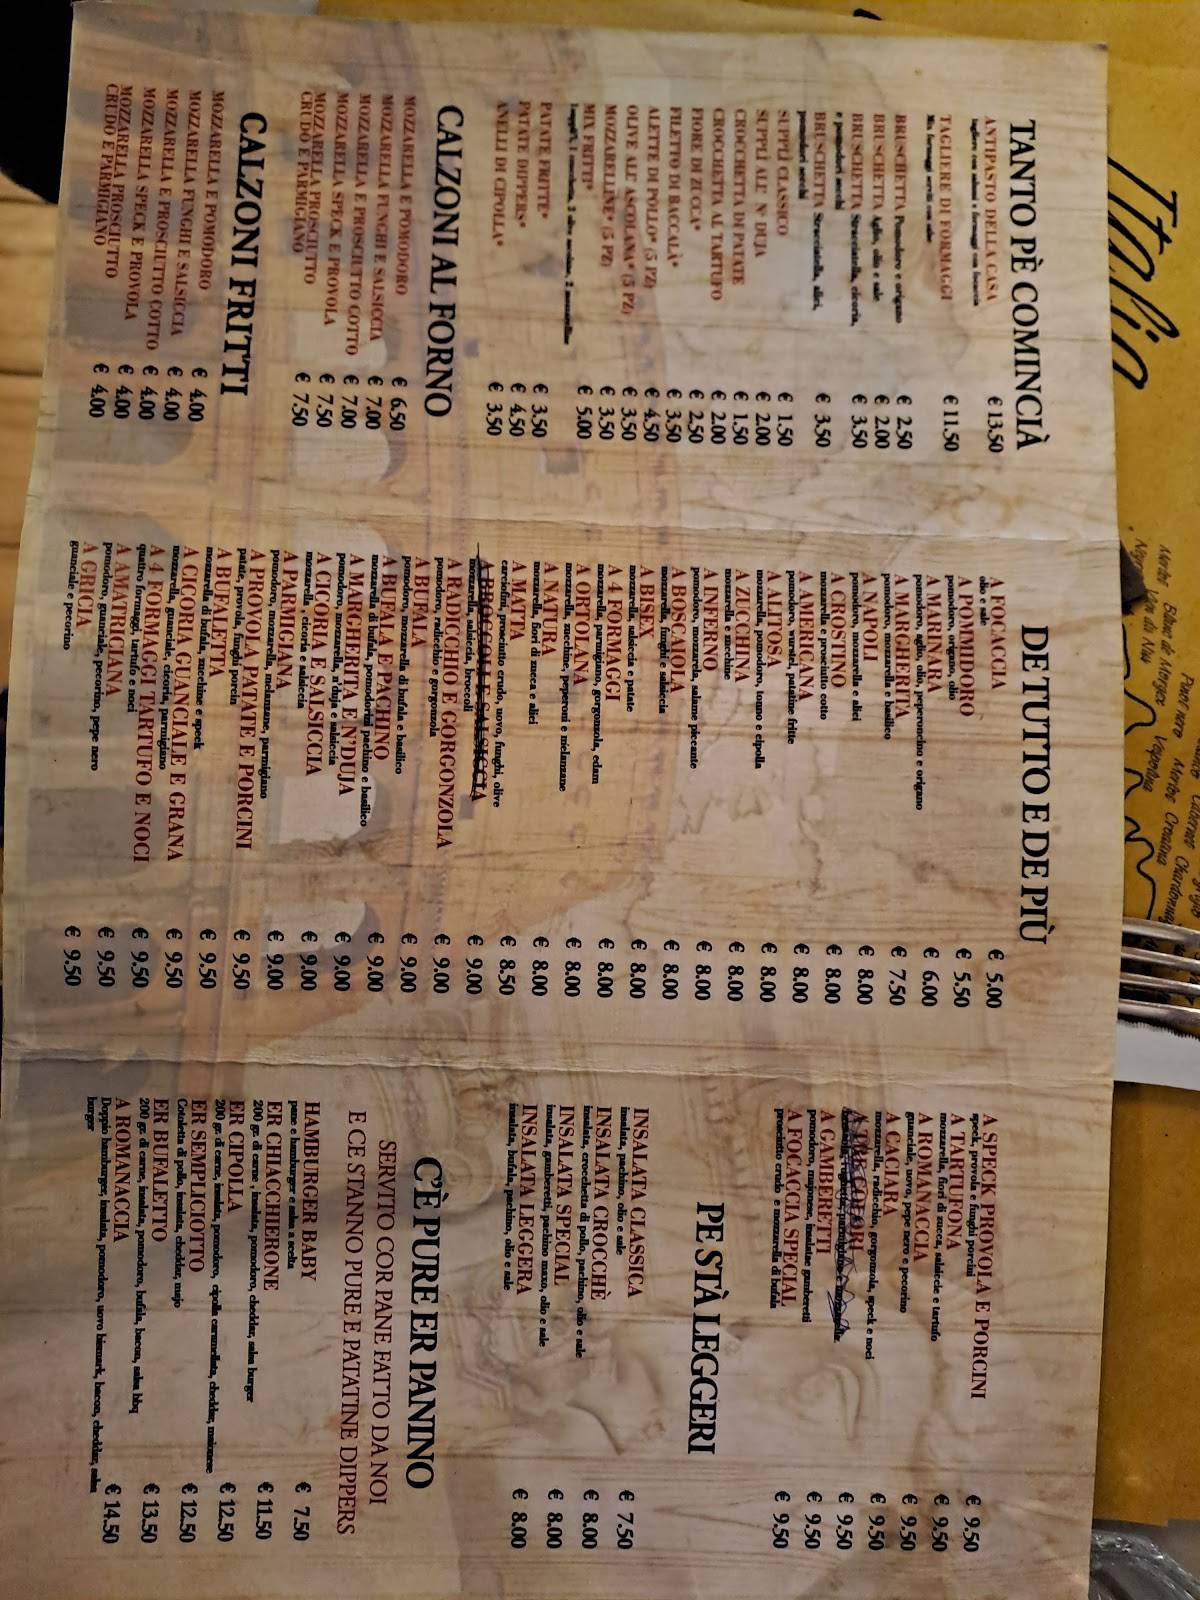 TANTO PÈ COMINCIÀ
ANTIPASTO DELLA CASA € 13.50
tagliere con salumi e formaggi con focaccia
TAGLIERE DI FORMAGGI € 11.50
Mix formaggi serviti con miele
BRUSCHETTA Pomodoro e origano € 2.50
BRUSCHETTA Aglio, olio e sale € 2.00
BRUSCHETTA Stracciatella, cicoria, € 3.50
e pomodori secchi
BRUSCHETTA Stracciatella, alici, € 3.50
pomodori secchi
SUPPLÌ CLASSICO € 1.50
SUPPLÌ ALL' N' DUJA € 2.00
CROCCHETTA DI PATATE € 1.50
CROCCHETTA AL TARTUFO € 2.00
FIORE DI ZUCCA* € 2.50
FILETTO DI BACCALÀ* € 3.50
ALETTE DI POLLO* (5 PZ) € 4.50
OLIVE ALL' ASCOLANA* (5 PZ) € 3.50
MOZZARELLINE* (5 PZ) € 3.50
MIX FRITTI* € 5.00
PATATE FRITTE* € 3.50
PATATE DIPPERS* € 4.50
ANELLI DI CIPOLLA* € 3.50
CALZONI AL FORNO
MOZZARELLA E POMODORO € 6.50
MOZZARELLA FUNGHI E SALSICCIA € 7.00
MOZZARELLA E PROSCIUTTO COTTO € 7.00
MOZZARELLA SPECK E PROVOLA € 7.50
MOZZARELLA PROSCIUTTO € 7.50
CRUDO E PARMIGIANO
CALZONI FRITTI
MOZZARELLA E POMODORO € 4.00
MOZZARELLA FUNGHI E SALSICCIA € 4.00
MOZZARELLA E PROSCIUTTO COTTO € 4.00
MOZZARELLA SPECK E PROVOLA € 4.00
MOZZARELLA PROSCIUTTO € 4.00
CRUDO E PARMIGIANO
DE TUTTO E DE PIÙ
A FOCACCIA € 5.00
olio e sale
A POMMIDORO € 5.50
pomodoro, origano, olio
A MARINARA € 6.00
pomodoro, aglio, olio, peperoncino e origano
A MARGHERITA € 7.50
pomodoro, mozzarella e basilico
A NAPOLI € 8.00
pomodoro, mozzarella e alici
A CROSTINO € 8.00
mozzarella e prosciutto cotto
A AMERICANA € 8.00
pomodoro, wurstel, patatine fritte
A ALITOSA € 8.00
mozzarella, pomodoro, tonno e cipolla
A ZUCCHINA € 8.00
mozzarella e zucchine
A INFERNO € 8.00
pomodoro, mozzarella, salame piccante
A BOSCAIOLA € 8.00
mozzarella, funghi e salsiccia
A BISEX € 8.00
mozzarella, salsiccia e patate
A 4 FORMAGGI € 8.00
mozzarella, parmigiano, gorgonzola, edam
A ORTOLANA € 8.00
mozzarella, zucchine, peperoni e melanzane
A NATURA € 8.00
mozzarella, fiori di zucca e alici
A MATTA € 8.50
carciofini, prosciutto crudo, uovo, funghi, olive
A BROCCOLI E SALSICCIA € 9.00
mozzarella, salsiccia, broccoli
A RADICCHIO E GORGONZOLA € 9.00
pomodoro, radicchio e gorgonzola
A BUFALA € 9.00
pomodoro, mozzarella di bufala e basilico
A BUFALA E PACHINO € 9.00
mozzarella di bufala, pomodorini pachino e basilico
A MARGHERITA E N'DUJA € 9.00
pomodoro, mozzarella, n'duja e salsiccia
A CICORIA E SALSICCIA € 9.00
mozzarella, cicoria e salsiccia
A PARMIGIANA € 9.00
pomodoro, mozzarella, melanzane, parmigiano
A PROVOLA PATATE E PORCINI € 9.50
patate, provola, funghi porcini
A BUFALETTA € 9.50
mozzarella di bufala, zucchine e speck
A CICORIA GUANCIALE E GRANA € 9.50
mozzarella, guanciale, cicoria, parmigiano
A 4 FORMAGGI TARTUFO E NOCI € 9.50
quattro formaggi, tartufo e noci
A AMATRICIANA € 9.50
pomodoro, guanciale, pecorino, pepe nero
A GRICIA € 9.50
guanciale e pecorino
A SPECK PROVOLA E PORCINI € 9.50
speck, provola e funghi porcini
A TARTUFONA € 9.50
mozzarella, fiori di zucca, salsiccia e tartufo
A ROMANACCIA € 9.50
guanciale, uovo, pepe nero e pecorino
A CACIARA € 9.50
mozzarella, radicchio, gorgonzola, speck e noci
€ 9.50
A GAMBERETTI € 9.50
pomodoro, maionese, insalata e gamberetti
A FOCACCIA SPECIAL € 9.50
prosciutto crudo e mozzarella di bufala
PE STÀ LEGGERI
INSALATA CLASSICA € 7.50
insalata, pachino, olio e sale
INSALATA CROCCHÈ € 8.00
insalata, crocchetta di pollo, pachino, olio e sale
INSALATA SPECIAL € 8.00
insalata, gamberetti, pachino mazzo, olio e sale
INSALATA LEGGERA € 8.00
insalata, bufala, pachino, olio e sale
C'È PURE ER PANINO
SERVITO COR PANE FATTO DA NOI
E CE STANNO PURE E PATATINE DIPPERS
HAMBURGER BABY € 7.50
pane e hamburger e salsa a scelta
ER CHIACCHIERONE € 11.50
200 gr. di carne, insalata, pomodoro, cheddar, salsa burger
ER CIPOLLA € 12.50
200 gr. di carne, insalata, pomodoro, cipolla caramellata, cheddar, maionese
ER SEMPLICIOTTO € 12.50
Cotoletta di pollo, insalata, cheddar, mayo
ER BUFALETTO € 13.50
200 gr. di carne, insalata, pomodoro, bufala, bacon, salsa bbq
A ROMANACCIA € 14.50
Doppio hamburger, insalata, pomodoro, uovo bismark, bacon, cheddar, salsa
burger